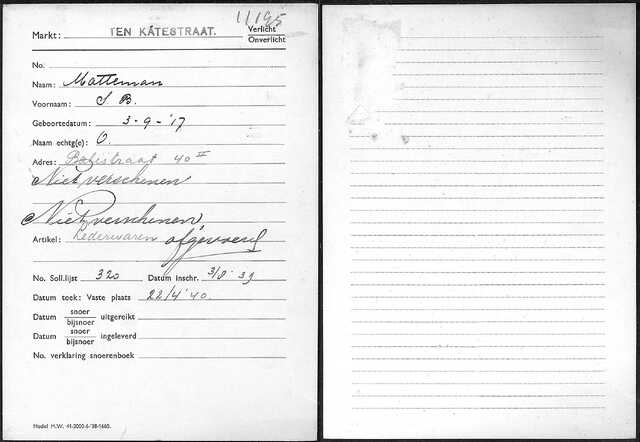 11195
Markt: TEN KATESTRAAT. Verlicht
Onverlicht
No.
Naam: Matteman
Voornaam: S B.
Geboortedatum: 3-9-'17
Naam echtg(e): O.
Adres: 40 II
Niet verschenen
Niet verschenen,
Artikel: Lederwaren afgevoerd
No. Soll.lijst 320 Datum Inschr. 3/8 '39
Datum toek: Vaste plaats 22/4 '40.
Datum snoer
bijsnoer uitgereikt
Datum snoer
bijsnoer ingeleverd
No. verklaring snoerenboek
Model M.W. 41-2000-6-'38-1660.